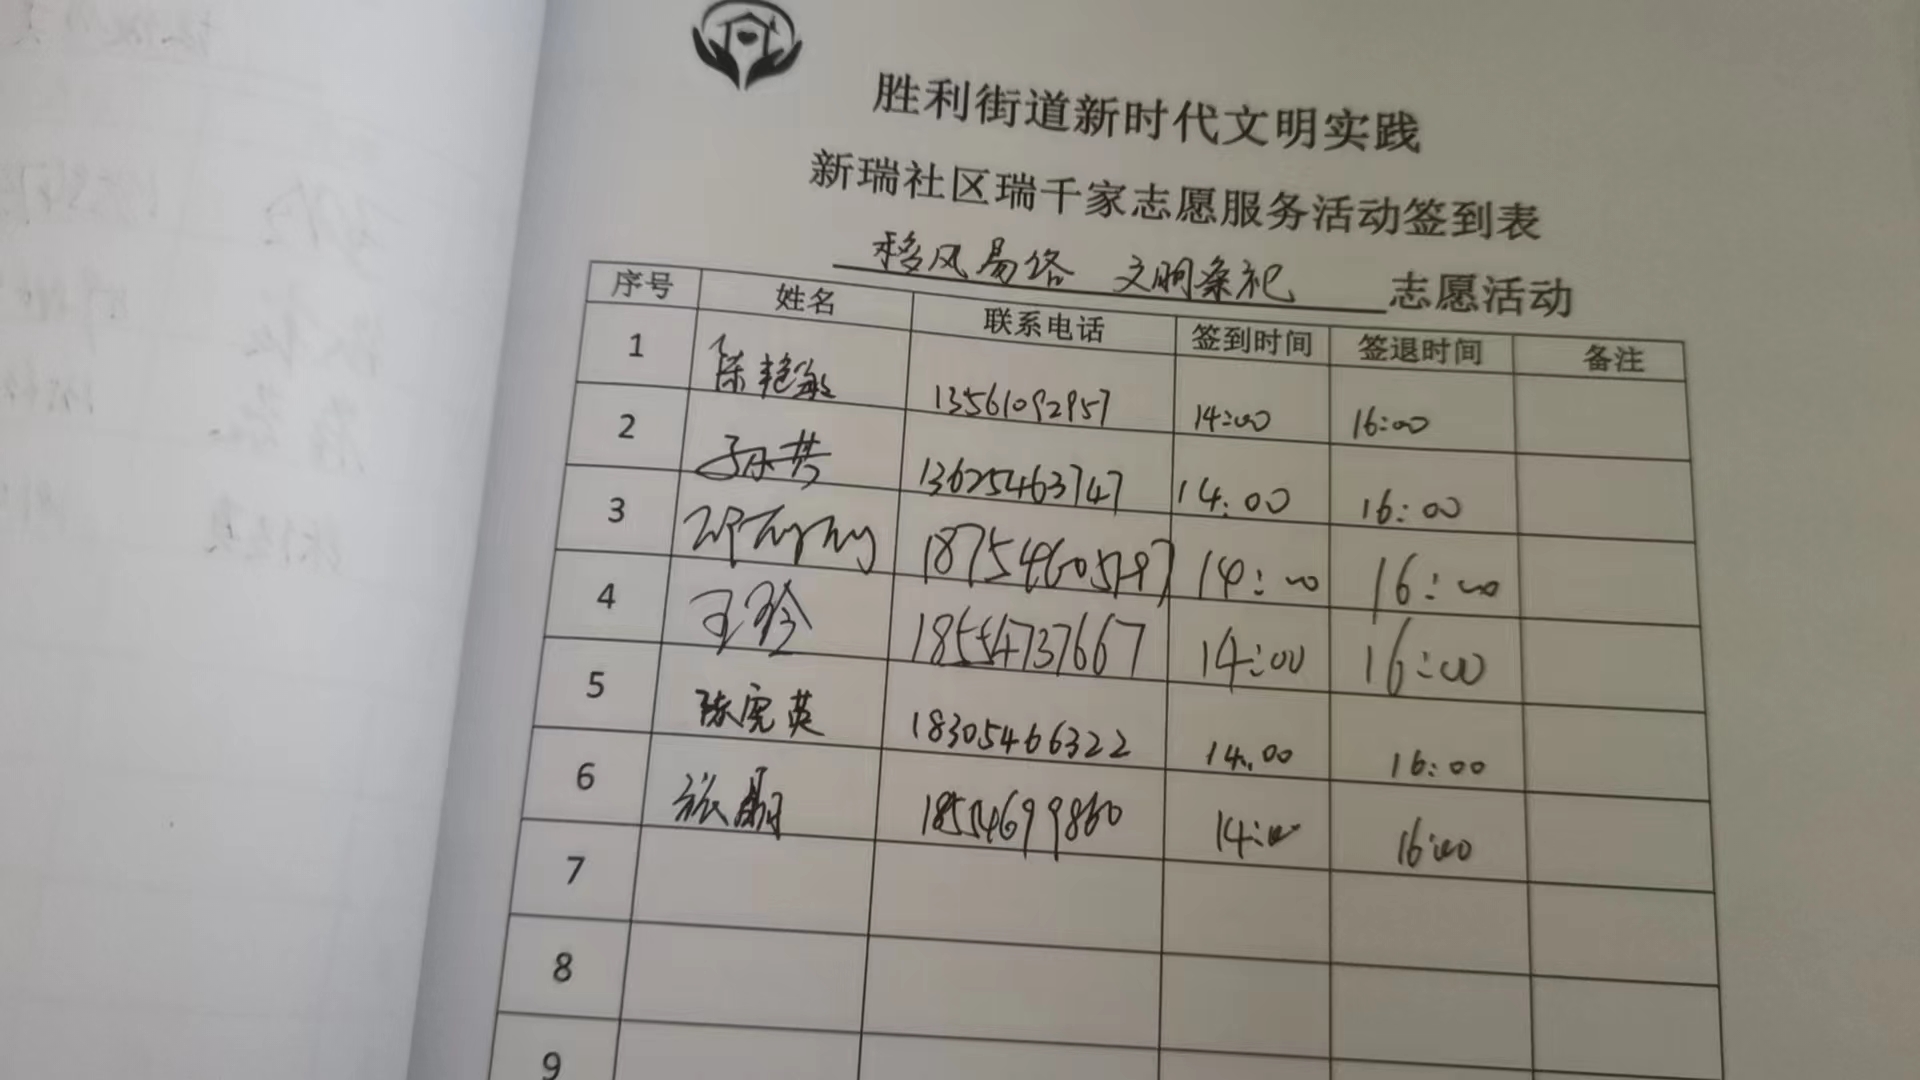 胜利街道新时代文明实践
新瑞社区瑞千家志愿服务活动签到表
移风易俗 文明祭祀 志愿活动
序号 姓名 联系电话 签到时间 签退时间 备注
1 陈艳敏 13561092957 14:00 16:00
2 孙芸 13625463747 14:00 16:00
3 14:00 16:00
4 王玲 18554737667 14:00 16:00
5 英 18305466322 14:00 16:00
6 18554699860 14:00 16:00
7
8
9